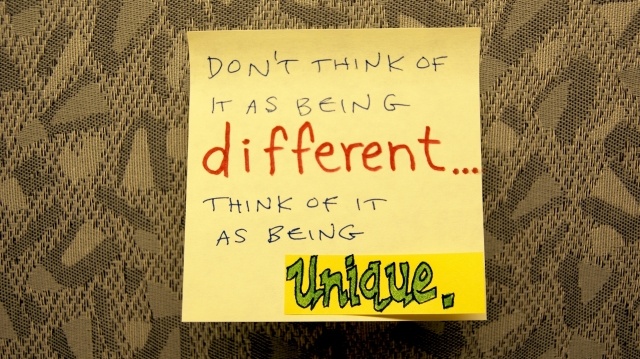 DON'T THINK OF
IT AS BEING
different...
THINK OF IT
AS BEING
Unique.